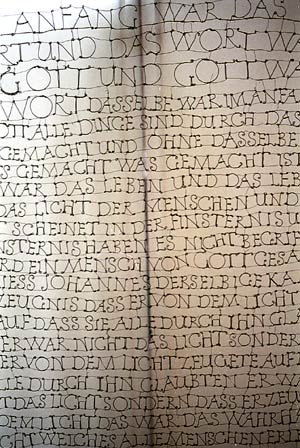 ANFANG WAR DAS
RT UND DAS WORT WA
GOTT UND GOTT WA
WORT DASSELBE WAR IM ANFA
OTT ALLE DINGE SIND DURCH DAS
GEMACHT UND OHNE DASSELBE
S GEMACHT WAS GEMACHT IST
WAR DAS LEBEN UND DAS LEB
DAS LICHT DER MENSCHEN UND
SCHEINET IN DER FINSTERNIS U
NSTERNIS HABEN ES NICHT BEGRIF
RD EIN MENSCH VON GOTT GESA
ESS JOHANNES DERSELBIGE KA
ZEUGNIS DASS ER VON DEM LICHT
AUF DASS SIE ALLE DURCH IHN GL
ER WAR NICHT DAS LICHT SONDER
ER VON DEM LICHT ZEUGETE AUF D
LE DURCH IHN GLAUBTEN ER WA
T DAS LICHT SONDERN DASS ER ZEU
DEM LICHT DAS WAR DAS WAHRHA
HT WELCHES ALLE MENSCHEN ERLE